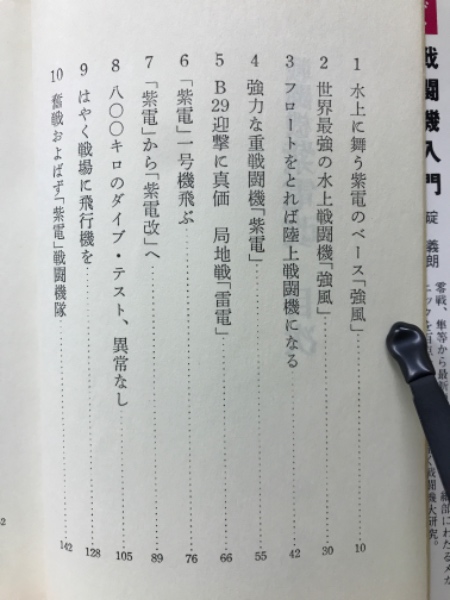 戦闘機入門
碇 義朗
1 水上に舞う紫電のベース「強風」 10
2 世界最強の水上戦闘機「強風」 30
3 フロートをとれば陸上戦闘機になる 42
4 強力な重戦闘機「紫電」 55
5 B29迎撃に真価 局地戦「雷電」 66
6 「紫電」一号機飛ぶ 76
7 「紫電」から「紫電改」へ 89
8 八〇〇キロのダイブ・テスト、異常なし 105
9 はやく戦場に飛行機を 128
10 奮戦およばず「紫電」戦闘機隊 142